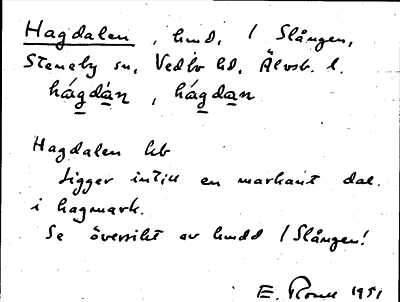 Hagdalen, hmd, / Slången,
Steneby sn, Vedbo hd, Älvsb. l.
hágdàn, hágdan
Hagdalen hb
Ligger intill en markant dal
i hagmark.
Se översikt av hmdd / Slången!
E. 1951